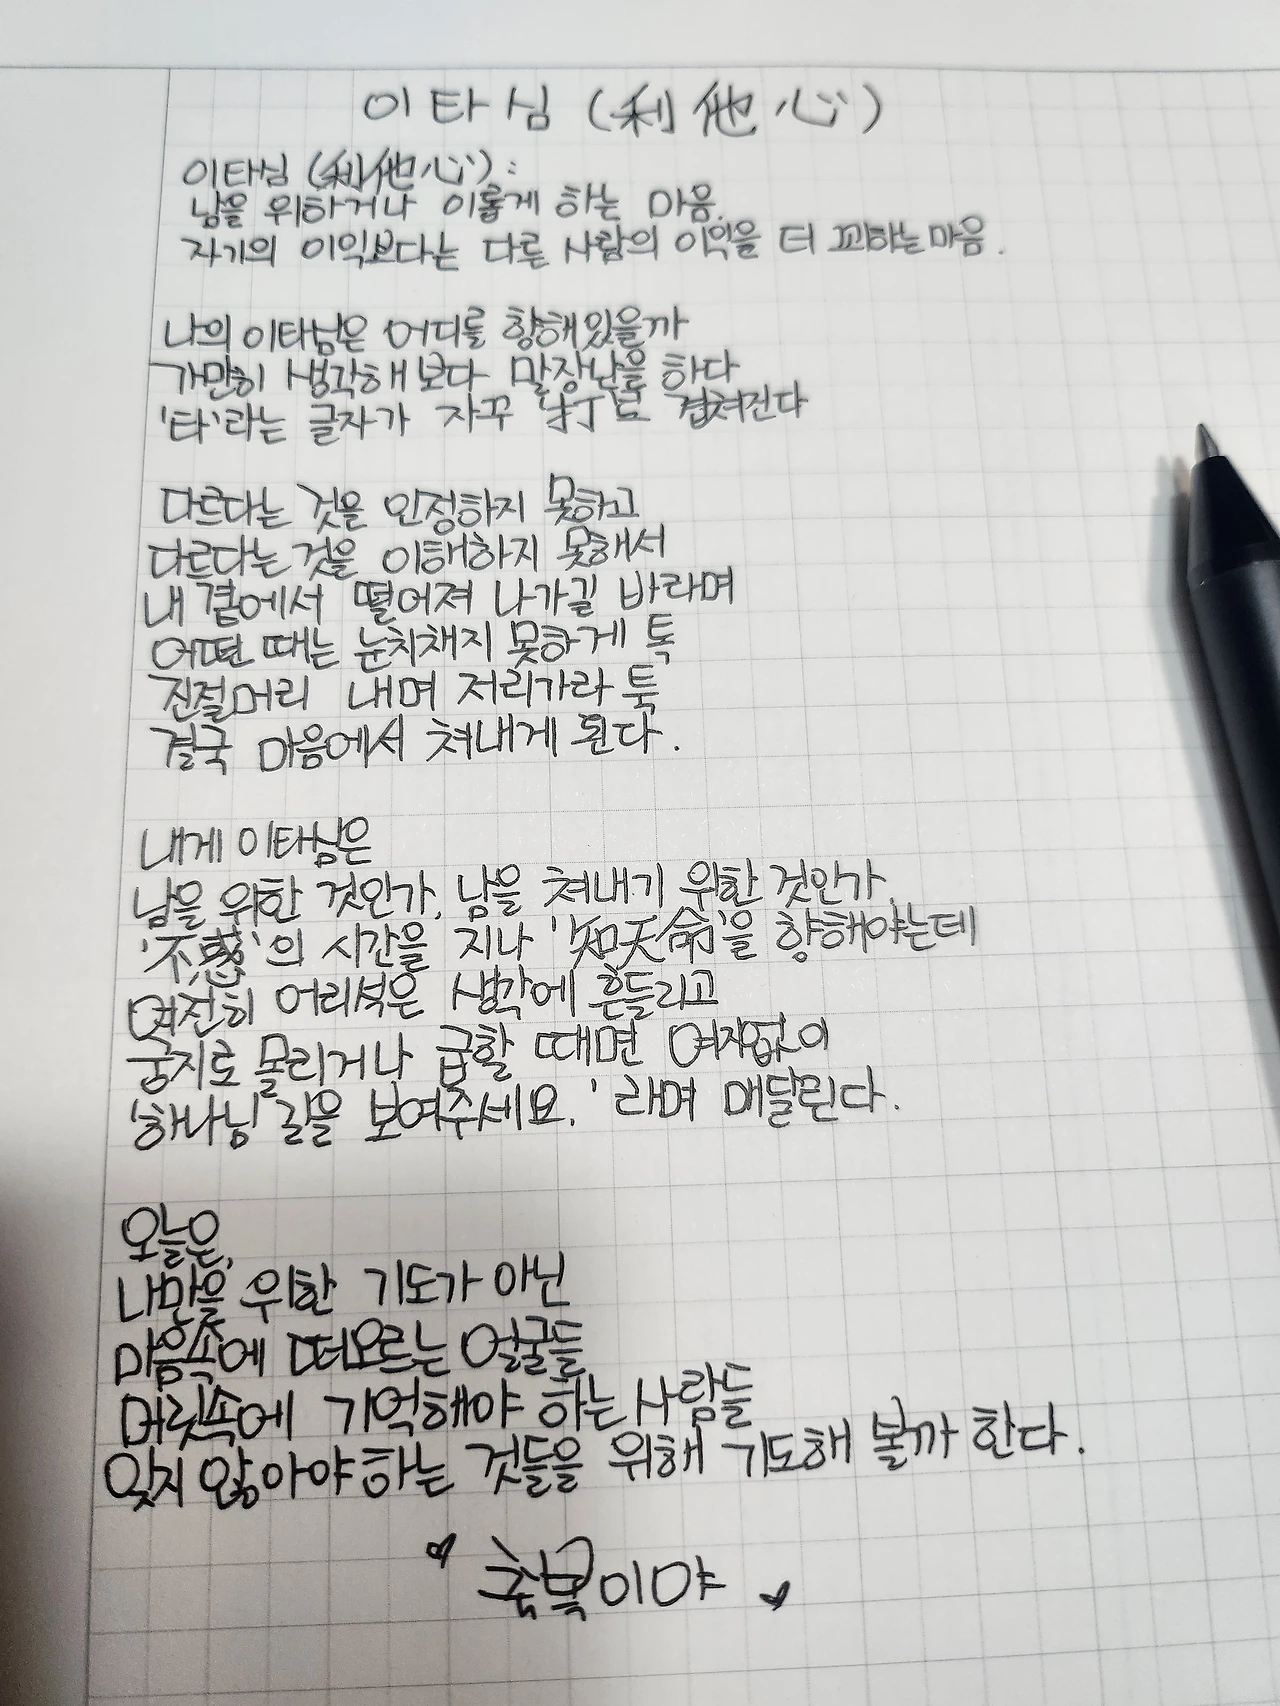 이타심 (利他心)
이타심 (利他心) :
남을 위하거나 이롭게 하는 마음.
자기의 이익보다는 다른 사람의 이익을 더 꾀하는 마음.
나의 이타심은 어디를 향해있을까
가만히 생각해 보다 말장난을 하다
'타'라는 글자가 자꾸 '打'로 겹쳐진다
다르다는 것을 인정하지 못하고
다르다는 것을 이해하지 못해서
내 곁에서 떨어져 나가길 바라며
어떤 때는 눈치채지 못하게 톡
진절머리 내며 저리가라 툭
결국 마음에서 쳐내게 된다.
내게 이타심은
남을 위한 것인가, 남을 쳐내기 위한 것인가,
'不惑'의 시간을 지나 '知天命'을 향해야는데
여전히 어리석은 생각에 흔들리고
궁지로 몰리거나 급할 때면 여지없이
'하나님 길을 보여주세요.' 라며 매달린다.
오늘은,
나만을 위한 기도가 아닌
마음속에 떠오르는 얼굴들
머릿속에 기억해야 하는 사람들
잊지 않아야 하는 것들을 위해 기도해 볼까 한다.
축복이야